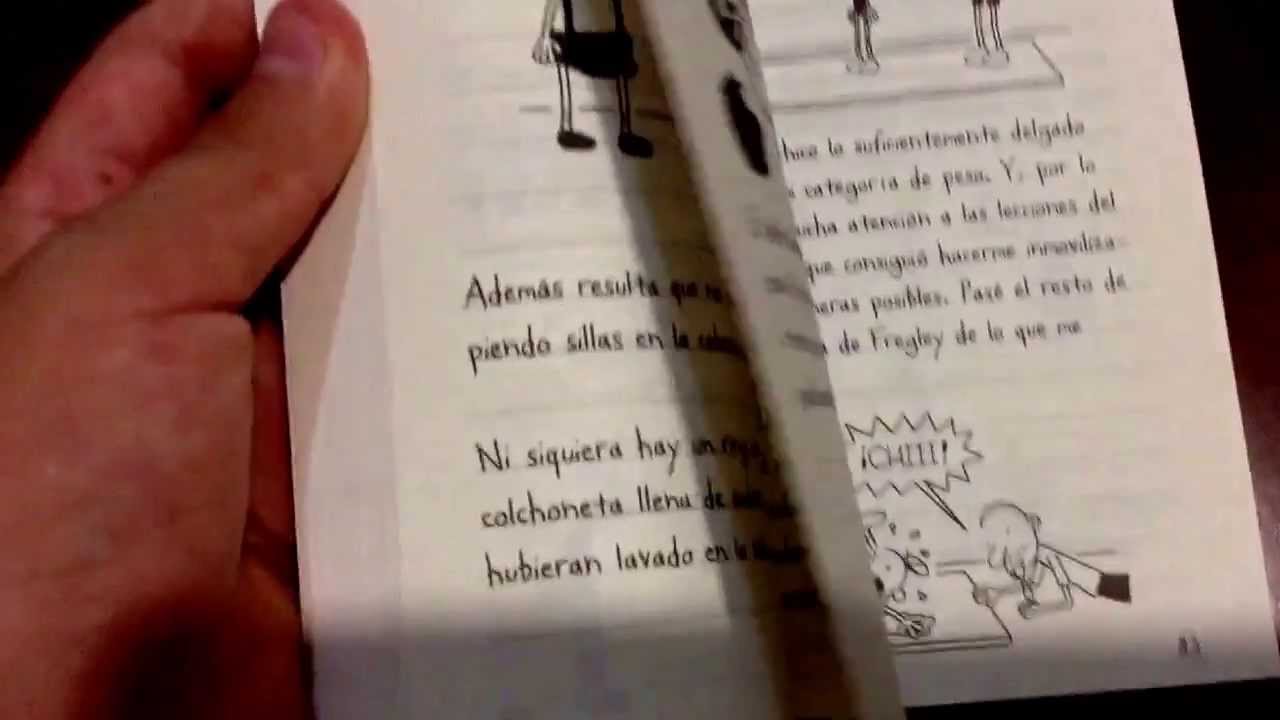 Además resulta que
piendo sillas en la
Ni siquiera hay un
colchoneta llena de
hubieran lavado en la
hice lo suficientemente delgado
categoría de peso. Y, por lo
atención a las lecciones del
que consiguió hacerme inmoviliza-
posibles. Pasé el resto de
de Fregley de lo que me
¡CHIII!